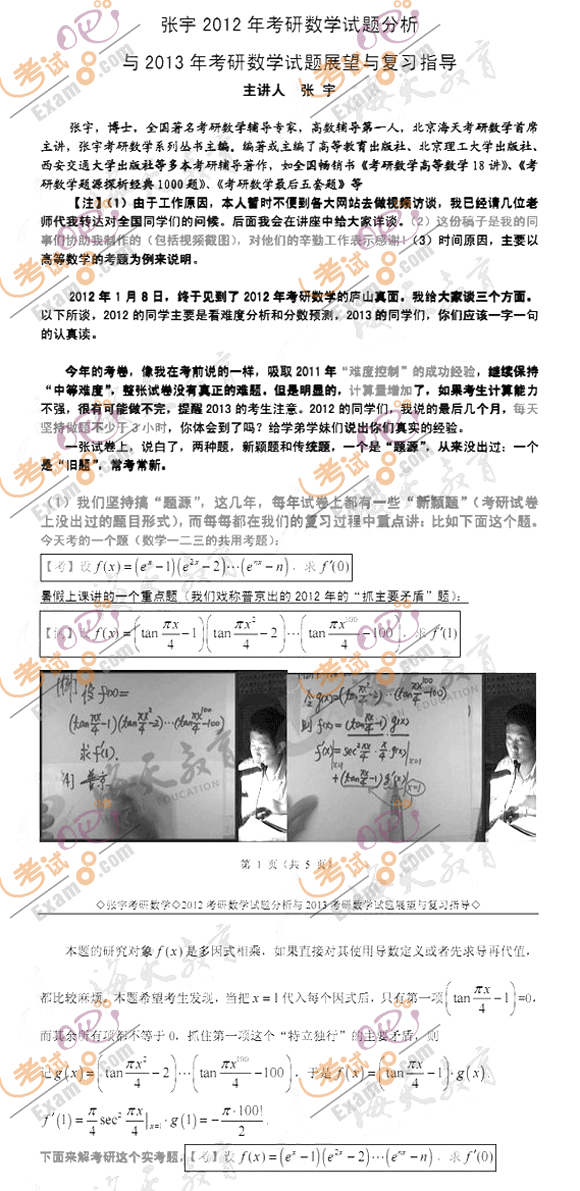 张宇 2012 年考研数学试题分析
与 2013 年考研数学试题展望与复习指导
主讲人 张 宇
张宇，博士，全国著名考研数学辅导专家，高数辅导第一人，北京海天考研数学首席
主讲，张宇考研数学系列丛书主编。编著或主编了高等教育出版社、北京理工大学出版社、
西安交通大学出版社等多本考研辅导著作，如全国畅销书《考研数学高等数学 18 讲》、《考
研数学题源探析经典 1000 题》、《考研数学最后五套题》等
【注】（1）由于工作原因，本人暂时不便到各大网站去做视频访谈，我已经请几位老
师代我转达对全国同学们的问候。后面我会在讲座中给大家详谈。（2）这份稿子是我的同
事们协助我制作的（包括视频截图），对他们的辛勤工作表示感谢！（3）时间原因，主要以
高等数学的考题为例来说明。
2012 年 1 月 8 日，终于见到了 2012 年考研数学的庐山真面。我给大家谈三个方面。
以下所谈，2012 的同学主要是看难度分析和分数预测，2013 的同学们，你们应该一字一句
的认真读。
今年的考卷，像我在考前说的一样，吸取 2011 年“难度控制”的成功经验，继续保持
“中等难度”，整张试卷没有真正的难题。但是明显的，计算量增加了，如果考生计算能力
不强，很有可能做不完，提醒 2013 的考生注意。2012 的同学们，我说的最后几个月，每天
坚持做题不少于 3 小时，你体会到了吗？给学弟学妹们说出你们真实的经验。
一张试卷上，说白了，两种题，新颖题和传统题，一个是“题源”，从来没出过；一个
是“旧题”，常考常新。
（1）我们坚持搞“题源”，这几年，每年试卷上都有一些“新颖题”（考研试卷
上没出过的题目形式），而每每都在我们的复习过程中重点讲：比如下面这个题。
今天考的一个题（数学一二三的共用考题）：
【考】设 f(x)=(e^x−1)(e^{2x}−2)⋯(e^{nx}−n)，求 f′(0)
暑假上课讲的一个重点题（我们戏称普京出的 2012 年的“抓主要矛盾”题）：
设 f(x)=(tan πx/4 −1)(tan πx²/4 −2)⋯(tan πx^{100}/4 −100)，求 f′(1)
[例] 设 f(x)=
(tan πx/4 −1)(tan πx²/4 −2)⋯(tan πx^{100}/4 −100)
求 f′(1).
普京
g(x)=(tan πx²/4 −2)⋯(tan πx^{100}/4 −100)
则 f(x)=(tan πx/4 −1)·g(x)
f′(x)|x=1 = sec² πx/4 · π/4 ·g(x)|x=1
+(tan πx/4 −1)g′(x)|x=1
海天教育
第 1 页（共 5 页）
◇张宇考研数学◇2012 考研数学试题分析与 2013 考研数学试题展望与复习指导◇
本题的研究对象 f(x) 是多因式相乘，如果直接对其使用导数定义或者先求导再代值，
都比较麻烦。本题希望考生发现，当把 x=1 代入每个因式后，只有第一项(tan πx/4 −1)=0，
而其余所有项都不等于 0，抓住第一项这个“特立独行”的主要矛盾，则
记 g(x)=(tan πx²/4 −2)⋯(tan πx^{100}/4 −100)，于是 f(x)=(tan πx/4 −1)·g(x)，
f′(1)=π/4 sec² πx/4 |x=1 ·g(1)=−π·100!/2.
下面来解考研这个实考题，【考】设 f(x)=(e^x−1)(e^{2x}−2)⋯(e^{nx}−n)，求 f′(0)